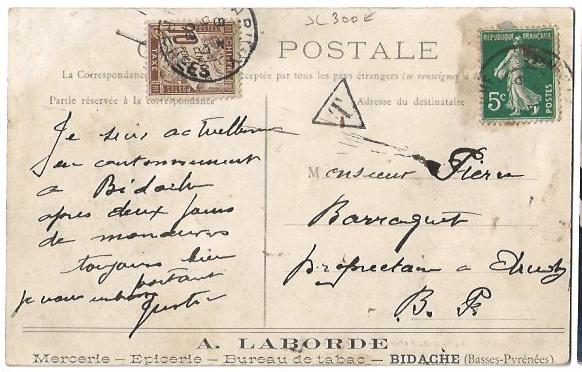 SC 300€
CARTE POSTALE
La Correspondance acceptée par tous les pays étrangers (se renseigner à la
Partie réservée à la correspondance
Adresse du destinataire
RÉPUBLIQUE FRANÇAISE
5c
POSTES
10
T
Je suis actuellement
en cantonnement
a Bidache
après deux jours
de manœuvres
toujours bien
portant
Je vous
Monsieur Pierre
Barraquet
propriétaire a
B. P.
A. LABORDE
Mercerie — Epicerie — Bureau de tabac — BIDACHE (Basses-Pyrénées)